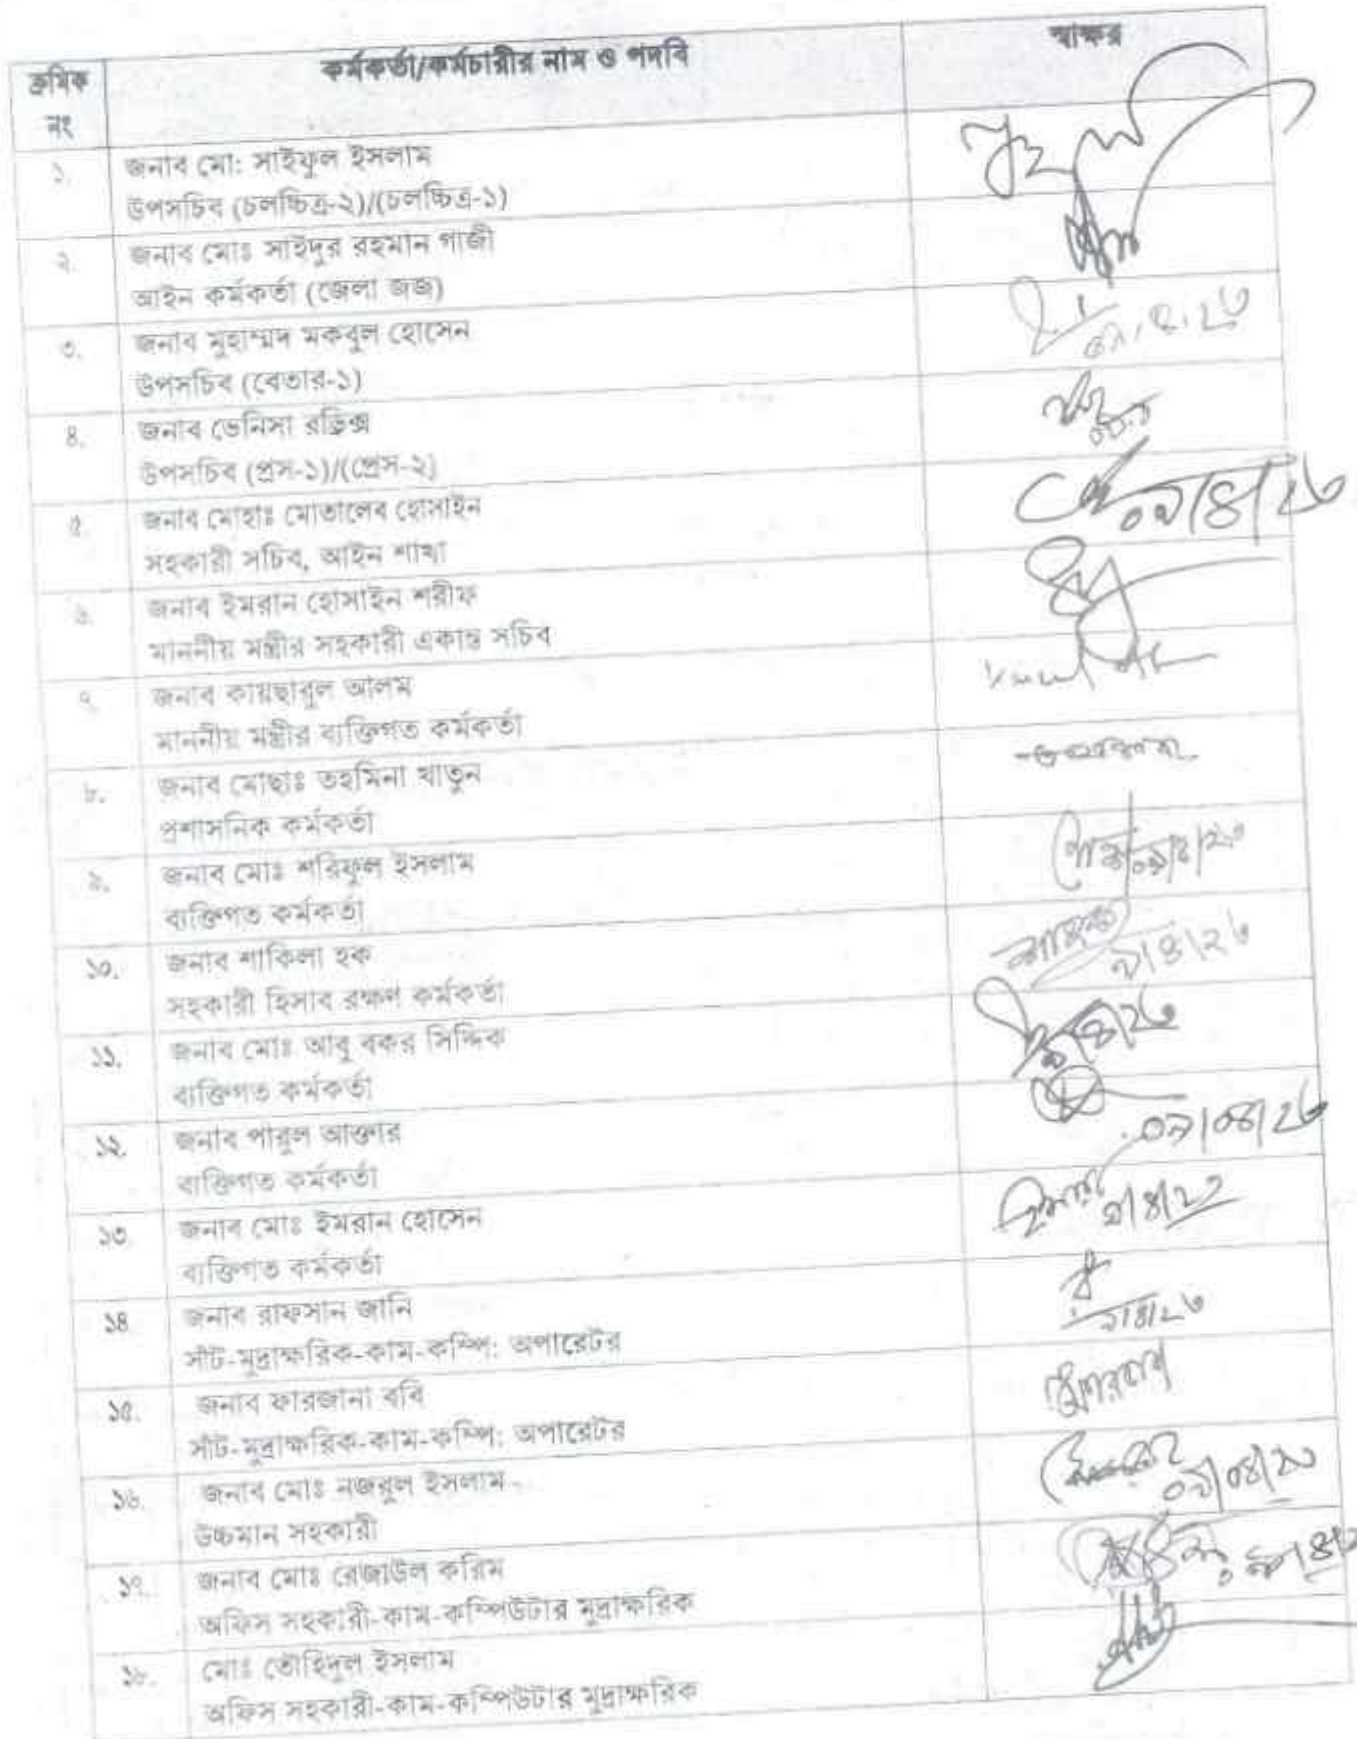 ক্রমিক নং
কর্মকর্তা/কর্মচারীর নাম ও পদবি
স্বাক্ষর
১. জনাব মো: সাইফুল ইসলাম
উপসচিব (চলচ্চিত্র-২)/(চলচ্চিত্র-১)
২. জনাব মোঃ সাইদুর রহমান গাজী
আইন কর্মকর্তা (জেলা জজ)
৩. জনাব মুহাম্মদ মকবুল হোসেন
উপসচিব (বেতার-১)
৪. জনাব ভেনিসা রড্রিক্স
উপসচিব (প্রস-১)/((প্রেস-২)
৫. জনাব মোহাঃ মোতালেব হোসাইন
০৯/৪/২৬
সহকারী সচিব, আইন শাখা
৬. জনাব ইমরান হোসাইন শরীফ
মাননীয় মন্ত্রীর সহকারী একান্ত সচিব
৭. জনাব কায়ছারুল আলম
মাননীয় মন্ত্রীর ব্যক্তিগত কর্মকর্তা
৮. জনাব মোছাঃ তহমিনা খাতুন
প্রশাসনিক কর্মকর্তা
৯. জনাব মোঃ শরিফুল ইসলাম
ব্যক্তিগত কর্মকর্তা
১০. জনাব শাকিলা হক
৯/৪/২৬
সহকারী হিসাব রক্ষণ কর্মকর্তা
১১. জনাব মোঃ আবু বকর সিদ্দিক
ব্যক্তিগত কর্মকর্তা
১২. জনাব পারুল আক্তার
০৯/০৪/২৬
ব্যক্তিগত কর্মকর্তা
১৩. জনাব মোঃ ইমরান হোসেন
ব্যক্তিগত কর্মকর্তা
১৪. জনাব রাফসান জানি
৯/৪/২৬
সাঁট-মুদ্রাক্ষরিক-কাম-কম্পি: অপারেটর
১৫. জনাব ফারজানা ববি
সাঁট-মুদ্রাক্ষরিক-কাম-কম্পি: অপারেটর
১৬. জনাব মোঃ নজরুল ইসলাম
উচ্চমান সহকারী
১৭. জনাব মোঃ রেজাউল করিম
অফিস সহকারী-কাম-কম্পিউটার মুদ্রাক্ষরিক
১৮. মোঃ তৌহিদুল ইসলাম
অফিস সহকারী-কাম-কম্পিউটার মুদ্রাক্ষরিক